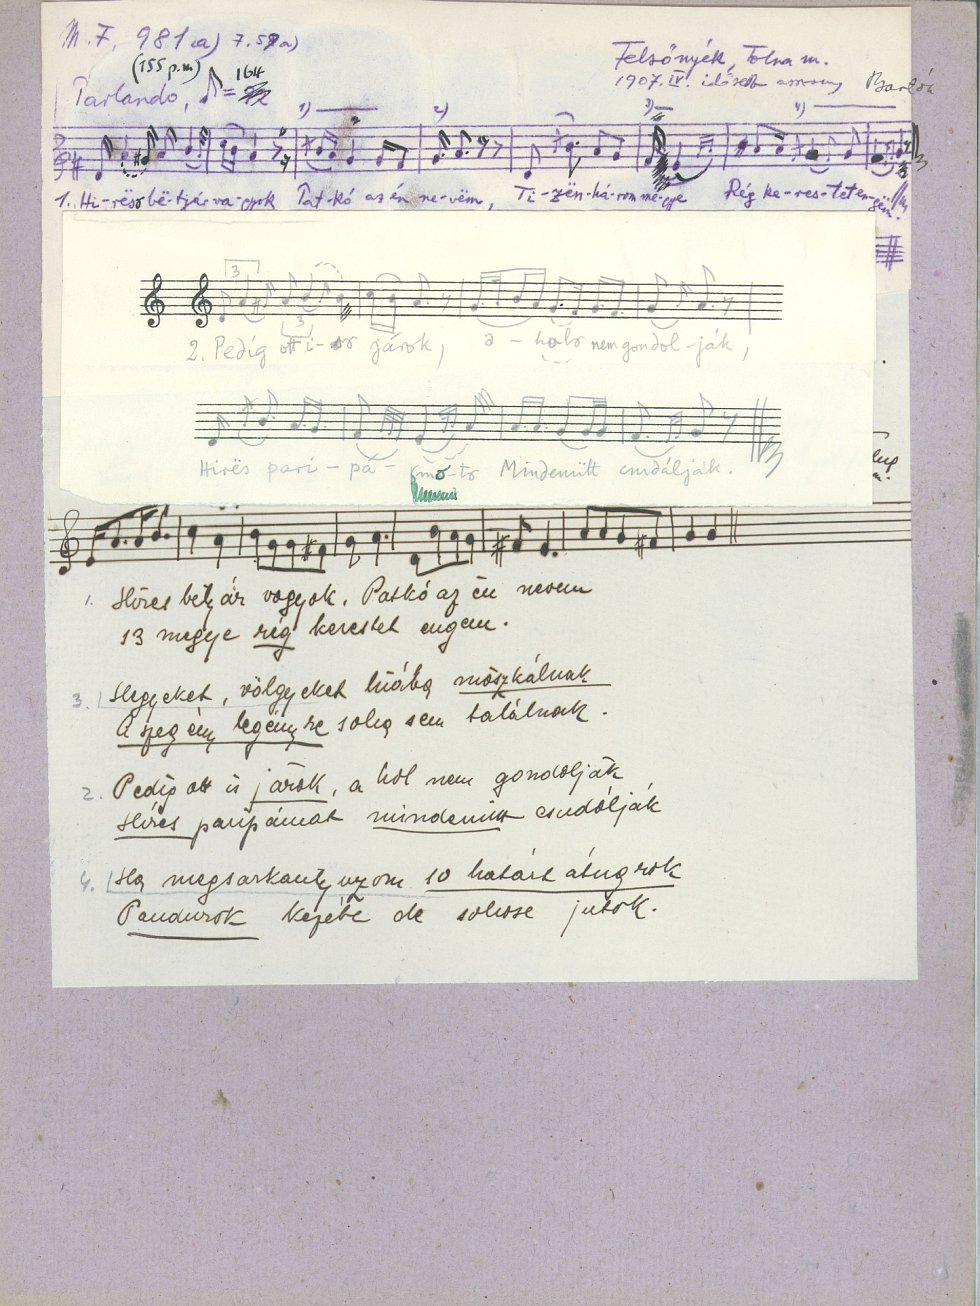 M.F. 981 a) 7.59 a)
(155 p.m) 164
Parlando,
Felsőnyék, Tolna m.
1907. IV. idősebb asszony Bartók
1) 2) 3) 4)
1. Hi-res bë-tyár va-gyok Pat-kó az én ne-vëm, Ti-zën-há-rom më-gye Rég ke-res-tet en-gëm.
3
3
2. Pedig ott i- járok, a - hol nem gondol-ják,
Hirës pari - pá - mo-to Mindenütt csudálják.
1. Híres betyár vagyok, Patkó az én nevem
13 megye rég kerestet engem.
3. Hegyeket, völgyeket hiába mászkálnak
A szegény legényre soha sem találnak.
2. Pedig ott is járok, a hol nem gondolják
Híres paripámat mindenütt csudálják
4. Ha megsarkantyuzom 10 határt átugrok
Pandurok kezébe de sohse jutok.